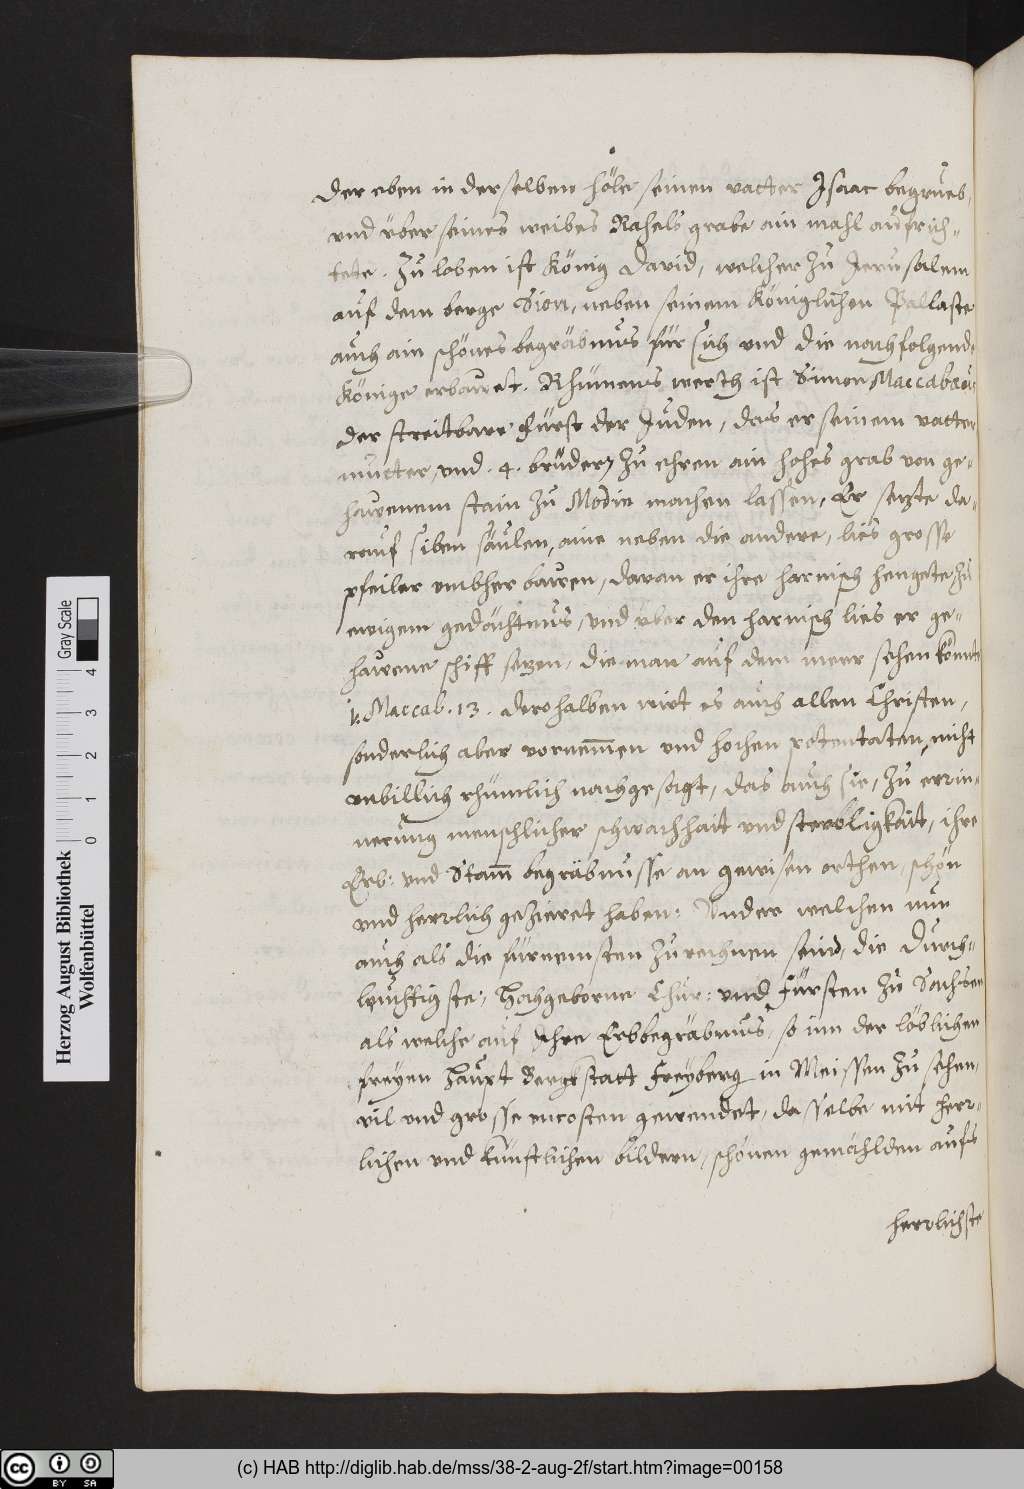 der eben in derselben höle seinen vatter Isaac begrueb,
vnd vber seines weibes Rahels grabe ain mahl aufrich-
tete. Zu loben ist König David, welcher zu Jerusalem
auf dem berge Sion, neben seinem Königlichen Pallaste
auch ain schönes begräbnus für sich vnd die nachfolgende
Könige erbawet. Rhümens werth ist Simon Maccabæus
der streitbare Fürst der Juden, das er seinem vatter
mutter, vnd .4. brüdern zu ehren ain hohes grab von ge-
hawenem stain zu Modin machen lassen, Er setzte da-
rauf siben säulen, aine neben die andere, lies grosse
pfeiler vmbher bawen, daran er ihre harnisch hengete, zu
ewigem gedächtnus, vnd vber den harnisch lies er ge-
hawene schiff setzen, die man auf dem meer sehen konnte
1. Maccab. 13. derohalben wirt es auch allen Christen,
sonderlich aber vornemmen vnd hohen potentaten, nicht
vnbillich rhümlich nachgesagt, das auch sie, zu errin-
nerung menschlicher schwachhait vnd sterbligkait, ihre
Erb: vnd Stam begräbnusse an gewisen orthen, schön
vnd herrlich gezieret haben: Vnder welchen nun
auch als die fürnemsten zu rechnen seind, die Durch-
leuchtigste, Hochgeborne Chur: vnd Fürsten zu Sachsen
als welche auf Ihre Erbbegräbnus, so inn der löblichen
freyen Haupt Bergkstatt Freyberg in Meissen zu sehen,
vil vnd grosse vncosten gewendet, dasselbe mit herr-
lichen vnd künstlichen bildern, schönen gemählden aufs
herrlichste
Herzog August Bibliothek
Wolfenbüttel
Gray Scale
0 1 2 3 4
cc BY SA
(c) HAB http://diglib.hab.de/mss/38-2-aug-2f/start.htm?image=00158